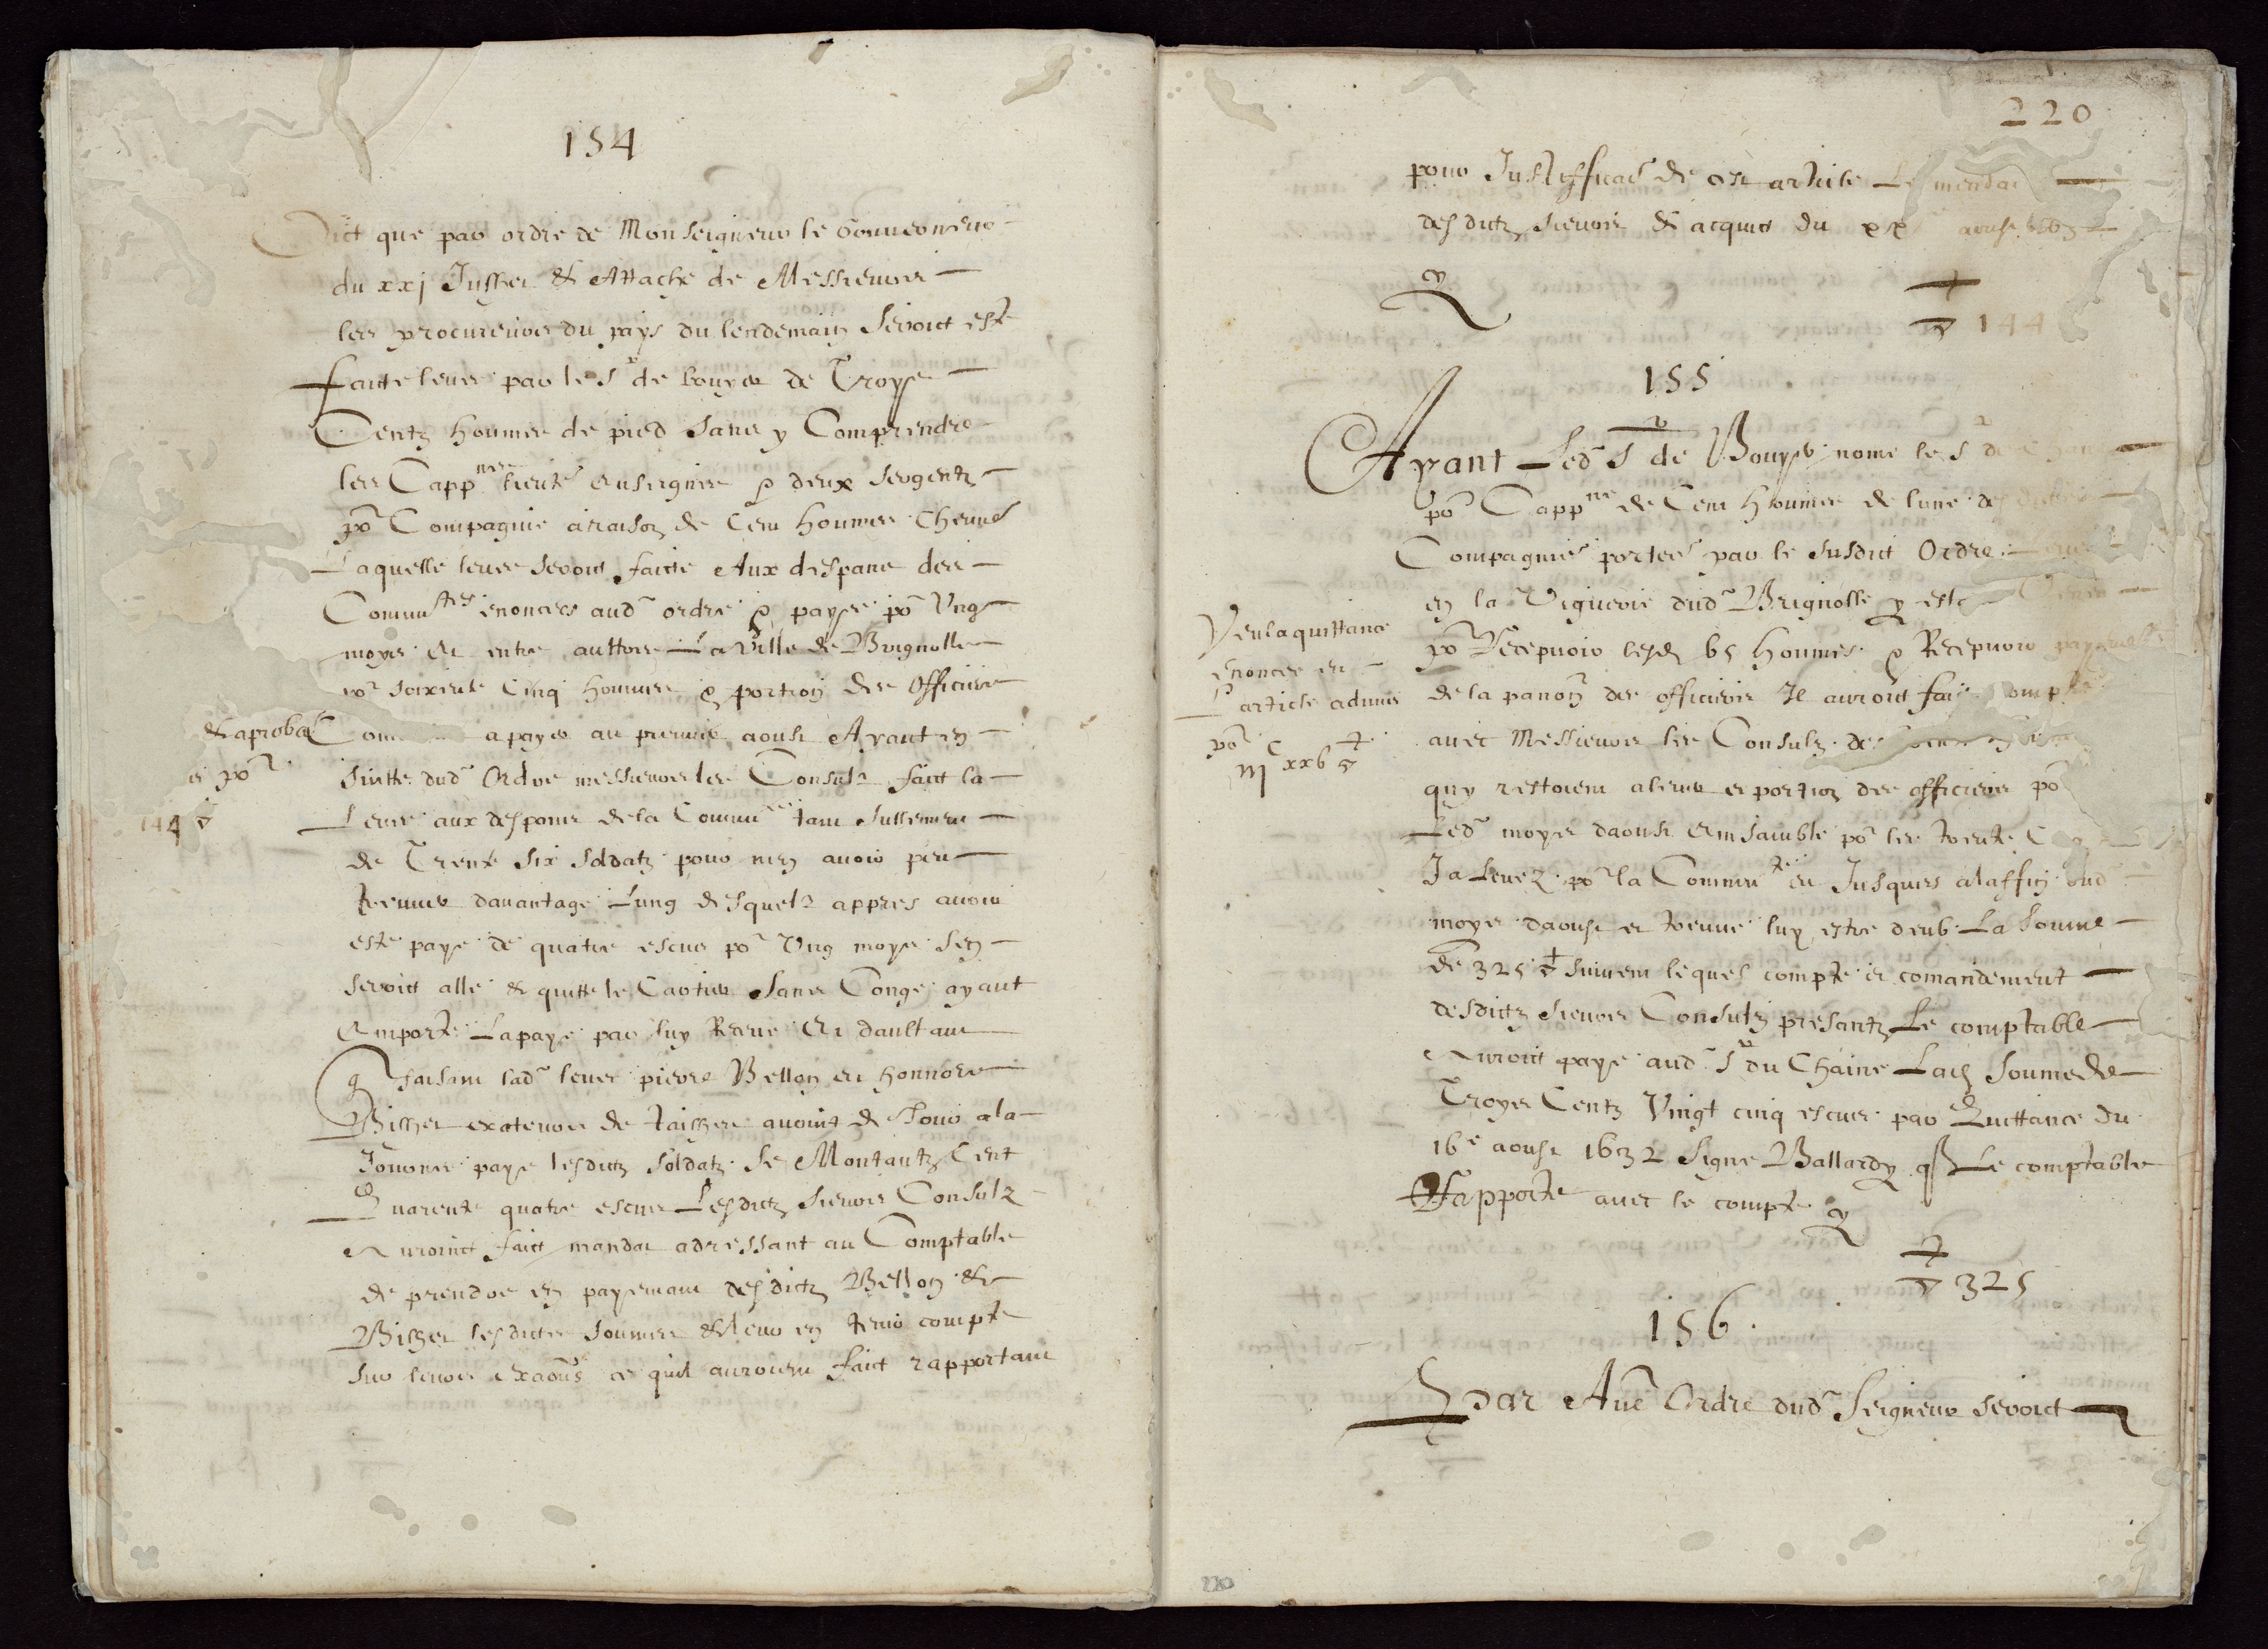 154
Dict que par ordre de Monseigneur le Gouverneur
du xxj Juilhet & Attache de Messieurs
les procureurs du pays du lendemain Seroict esté
faicte levee par le Sr de bouyer de Troys
Centz hommes de pied sans y Comprendre
les Cappnes lieuts enseignes & deux sergentz
po Compagnie a raison de Cent hommes Chescune
Laquelle levee seroict faicte Aux despans des
Commutes enoncees aud ordre & payee po Ung
moys et entre auttres La Ville de Brignolle
por soixente Cinq hommes & portion des Officiers
a payer au premier aoust Ayant en
& aproba
suitte dud Ordre messieurs les Consulz faict la
er por
Levee aux despans de la Commte tant sullement
144
de Trente six soldatz pour nen avoir peu
treuver davantage Lung desquelz appres avoir
esté payé de quatre escus por Ung moys sen
seroict allé & quitté le Cartier Sans Congé ayant
Emporté La paye par luy Receue Et daultant
q faisant lad levee pierre Bellon et honnoré
Bilhet exateurs de tailhes avoint de Jour a la
Journee payé lesdictz soldatz Se Montantz Cent
Quarente quatre escus Lesdictz sieurs Consulz
Auroint faict mandat adressant au Comptable
de prendre en payemant desdictz Bellon &
Bilhet lesdictes sommes & leur en tenir compte
sur leurs exaons ce quil auroient faict rapportant
220
pour Justifficaon de cest article Le mandat
desdictz sieurs & acquict du xx aoust
cy
144
155
Ayant Led Sr de Bouyer nomé le Sr de
po Cappne de Cent hommes de lune des
Compagnies portees par le susdict Ordre
en la Viguerie dud Brignolle & esté
Veu la quittance
po Recepvoir lesd 65 hommes & Recepvoir payement
enoncee en
de la panon des officiers Il auroict faict compte
L article admis
avec Messieurs les Consulz des
por
iijC xxb
quy restoient a lever et portion des officiers po
Led moys daoust Emsamble por les trente
Ja Levez po la Commute et Jusques a la ffin dud
moys daoust et treuvé luy estre deub La Somme
de 325 suivent lequel compte et comandement
desdictz sieurs Consulz presantz Le comptable
Auroict payé aud Sr du Chaine Lad Somme de
Troys Centz Vingt cinq escus par Quittance du
16e aoust 1632 Signé Ballardy q Le comptable
Rapporte avec le compte cy
325
156
Par Aue Ordre dud Seigneur seroict
220